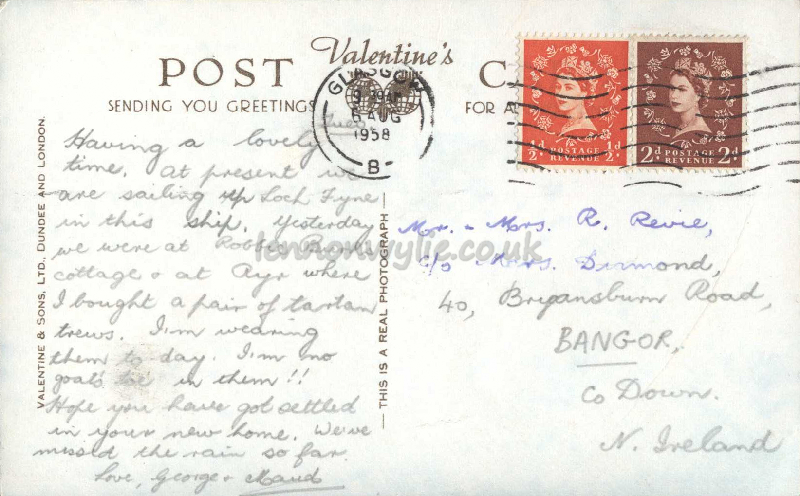 Valentine's
POST C
SENDING YOU GREETINGS FOR A
GLASGOW
6 AUG
1958
B
½d ½d
POSTAGE
REVENUE
2d 2d
POSTAGE
REVENUE
VALENTINE & SONS, LTD., DUNDEE AND LONDON.
THIS IS A REAL PHOTOGRAPH
Tues.
Having a lovely
time. At present we
are sailing up Loch Fyne
in this ship. Yesterday
we were at Robbie Burns
cottage & at Ayr where
I bought a pair of tartan
trews. I'm wearing
them to-day. I'm no
goals in them!!
Hope you have got settled
in your new home. We've
missed the rain so far.
Love, George & Maud
Mr. & Mrs. R. Revie,
c/o Mrs. Diamond,
40, Bryansburn Road,
BANGOR,
Co Down.
N. Ireland
lennonwylie.co.uk